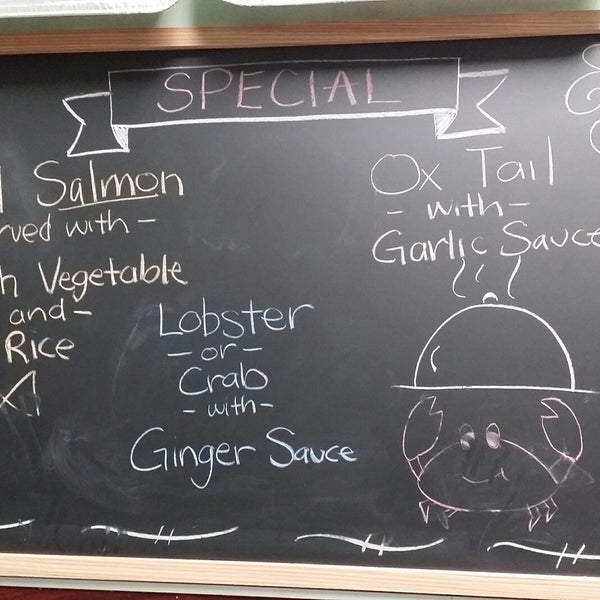 SPECIAL
Salmon
with -
Vegetable
and -
Rice
Lobster
- or -
Crab
- with -
Ginger Sauce
Ox Tail
- with -
Garlic Sauce